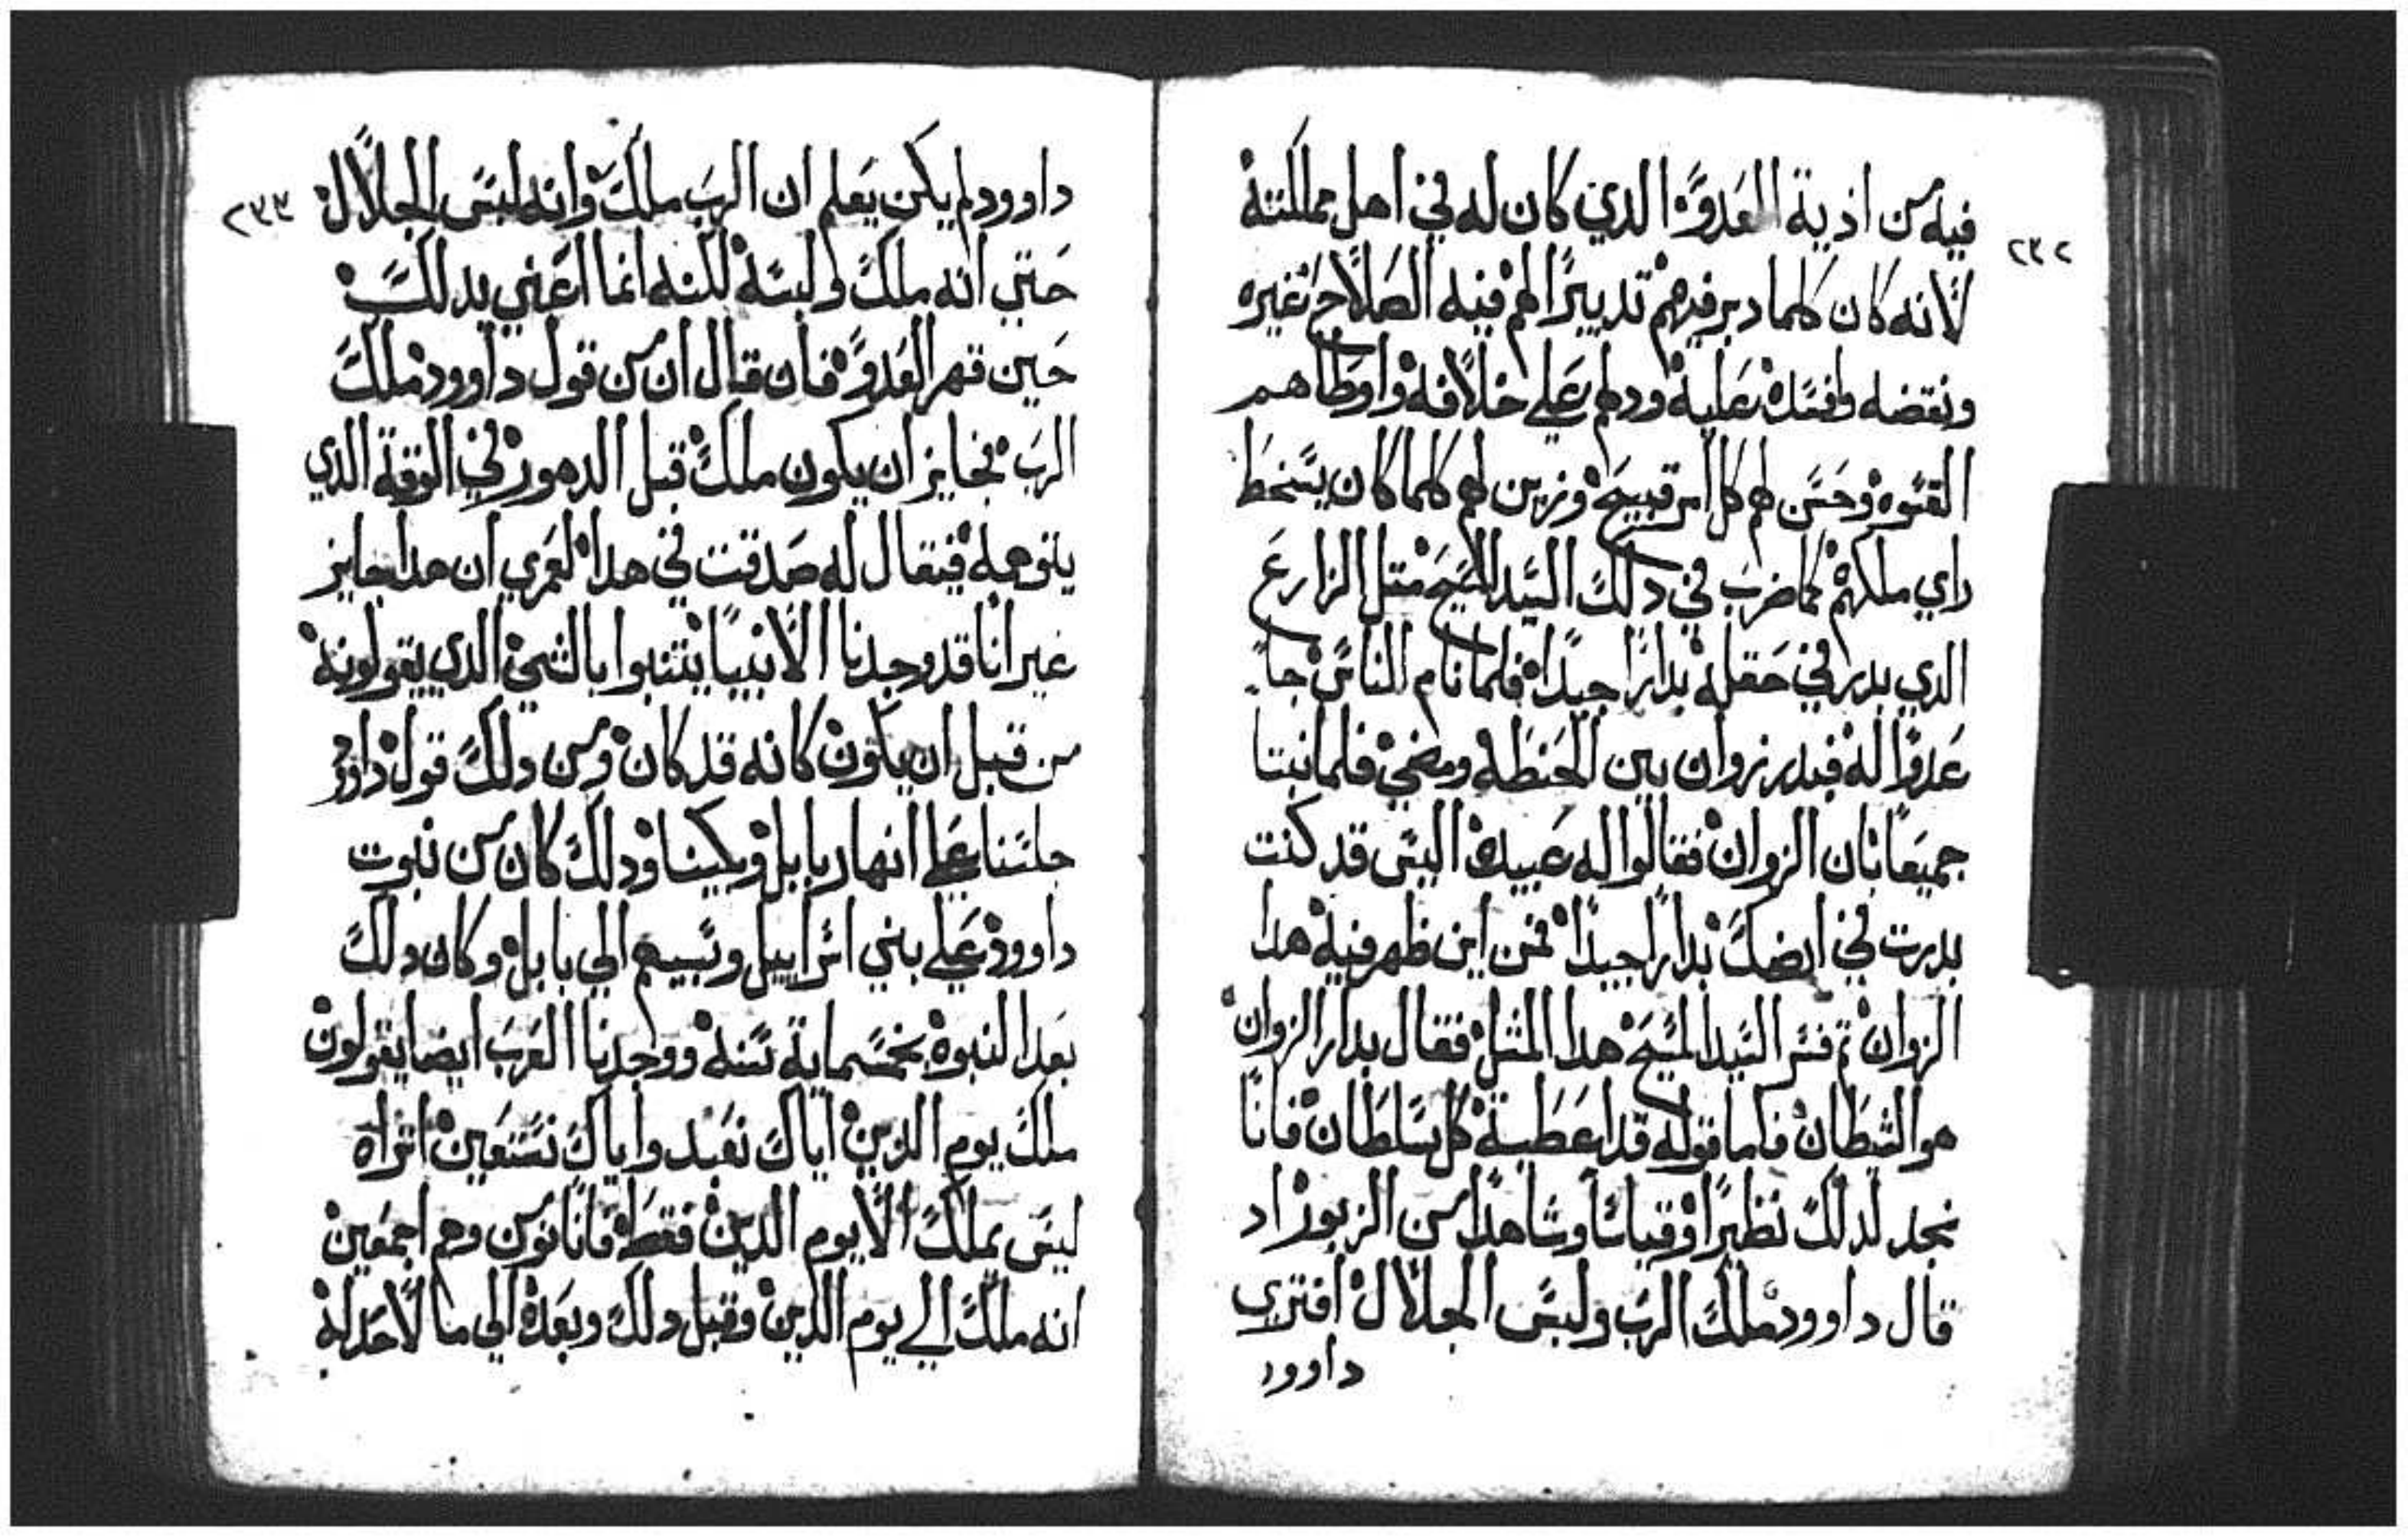 ٢٣٢
فيه من اذية العدو الدي كان له في اهل مملكته
لانه كان كلما دبر فيهم تدبيرًا لهم فيه الصلاح غيره
ونقضه وافسده عليه ودلهم علي خلافه واوطاهم
القسوه وحسن لهم كل امر قبيح وزين لهم كلما كان يسخط
راي ملكهم كما ضرب في دلك السيد المسيح متل الزارع
الدي بدر في حقله بدارًا جيدًا فلما نام الناس جا
عدوًا له فبدر زوان بين الحنطه ومضي فلما نبتا
جميعًا بان الزوان فقالوا له عبيده اليس قد كنت
بدرت في ارضك بدارًا جيدًا فمن اين ظهر فيه هدا
الزوان تم فسر السيد المسيح هدا المثل فقال بدار الزوان
هو الشيطان فاما قوله قد اعطيه كل سلطان فانا
نجد لدلك نظيرًا وقياسًا وشاهدًا من الزبور اد
قال داوود ملك الرب ولبس الجلال افتري
داوود
٢٣٣
داوود لم يكن يعلم ان الرب ملك وانه لبس الجلال
حتي انه ملك ولبسه لكنه انما اعني بدلك
حين قهر العدو فان قال ان من قول داوود ملك
الرب فجايز ان يكون ملك قبل الدهور في الوقت الدي
يتوهمه فيقال له صدقت في هدا لعمري ان هدا جايز
غير انا قد وجدنا الانبيا يتنبوا بالشي الدي يقولونه
من قبل ان يكون كانه قد كان ومن دلك قول داوود
جلسنا علي انهار بابل وبكينا ودلك كان من نبوت
داوود علي بني اسراييل وسبيهم الي بابل وكان دلك
بعد النبوه بخمسماية سنه ووجدنا العرب ايضا يقولون
ملك يوم الدين اياك نعبد واياك نستعين اتراه
ليس يملك الا يوم الدين فقط فانا نومن وهم اجمعين
انه ملك الي يوم الدين وقبل دلك وبعده الي ما لا حد له